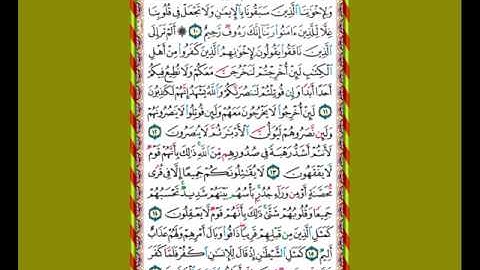 وَلِإِخْوَٰنِنَا ٱلَّذِينَ سَبَقُونَا بِٱلْإِيمَٰنِ وَلَا تَجْعَلْ فِى قُلُوبِنَا
غِلًّا لِّلَّذِينَ ءَامَنُوا۟ رَبَّنَآ إِنَّكَ رَءُوفٌ رَّحِيمٌ ١٠ ۞ أَلَمْ تَرَ إِلَى
ٱلَّذِينَ نَافَقُوا۟ يَقُولُونَ لِإِخْوَٰنِهِمُ ٱلَّذِينَ كَفَرُوا۟ مِنْ أَهْلِ
ٱلْكِتَٰبِ لَئِنْ أُخْرِجْتُمْ لَنَخْرُجَنَّ مَعَكُمْ وَلَا نُطِيعُ فِيكُمْ
أَحَدًا أَبَدًا وَإِن قُوتِلْتُمْ لَنَنصُرَنَّكُمْ وَٱللَّهُ يَشْهَدُ إِنَّهُمْ لَكَٰذِبُونَ
١١ لَئِنْ أُخْرِجُوا۟ لَا يَخْرُجُونَ مَعَهُمْ وَلَئِن قُوتِلُوا۟ لَا يَنصُرُونَهُمْ
وَلَئِن نَّصَرُوهُمْ لَيُوَلُّنَّ ٱلْأَدْبَٰرَ ثُمَّ لَا يُنصَرُونَ ١٢
لَأَنتُمْ أَشَدُّ رَهْبَةً فِى صُدُورِهِم مِّنَ ٱللَّهِ ذَٰلِكَ بِأَنَّهُمْ قَوْمٌ
لَّا يَفْقَهُونَ ١٣ لَا يُقَٰتِلُونَكُمْ جَمِيعًا إِلَّا فِى قُرًى
مُّحَصَّنَةٍ أَوْ مِن وَرَآءِ جُدُرٍۭ بَأْسُهُم بَيْنَهُمْ شَدِيدٌ تَحْسَبُهُمْ
جَمِيعًا وَقُلُوبُهُمْ شَتَّىٰ ذَٰلِكَ بِأَنَّهُمْ قَوْمٌ لَّا يَعْقِلُونَ ١٤
كَمَثَلِ ٱلَّذِينَ مِن قَبْلِهِمْ قَرِيبًا ذَاقُوا۟ وَبَالَ أَمْرِهِمْ وَلَهُمْ عَذَابٌ
أَلِيمٌ ١٥ كَمَثَلِ ٱلشَّيْطَٰنِ إِذْ قَالَ لِلْإِنسَٰنِ ٱكْفُرْ فَلَمَّا كَفَرَ